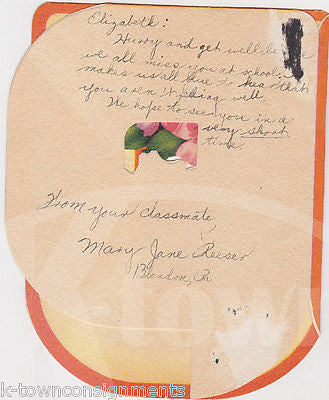 Elizabeth:
Hurry and get well be
we all miss you at school.
makes us all blue to hear that
you aren't feeling well.
We hope to see you in a
very short
time.
From your classmate,
Mary Jane Reeser
Blandon, Pa
k-townconsignments